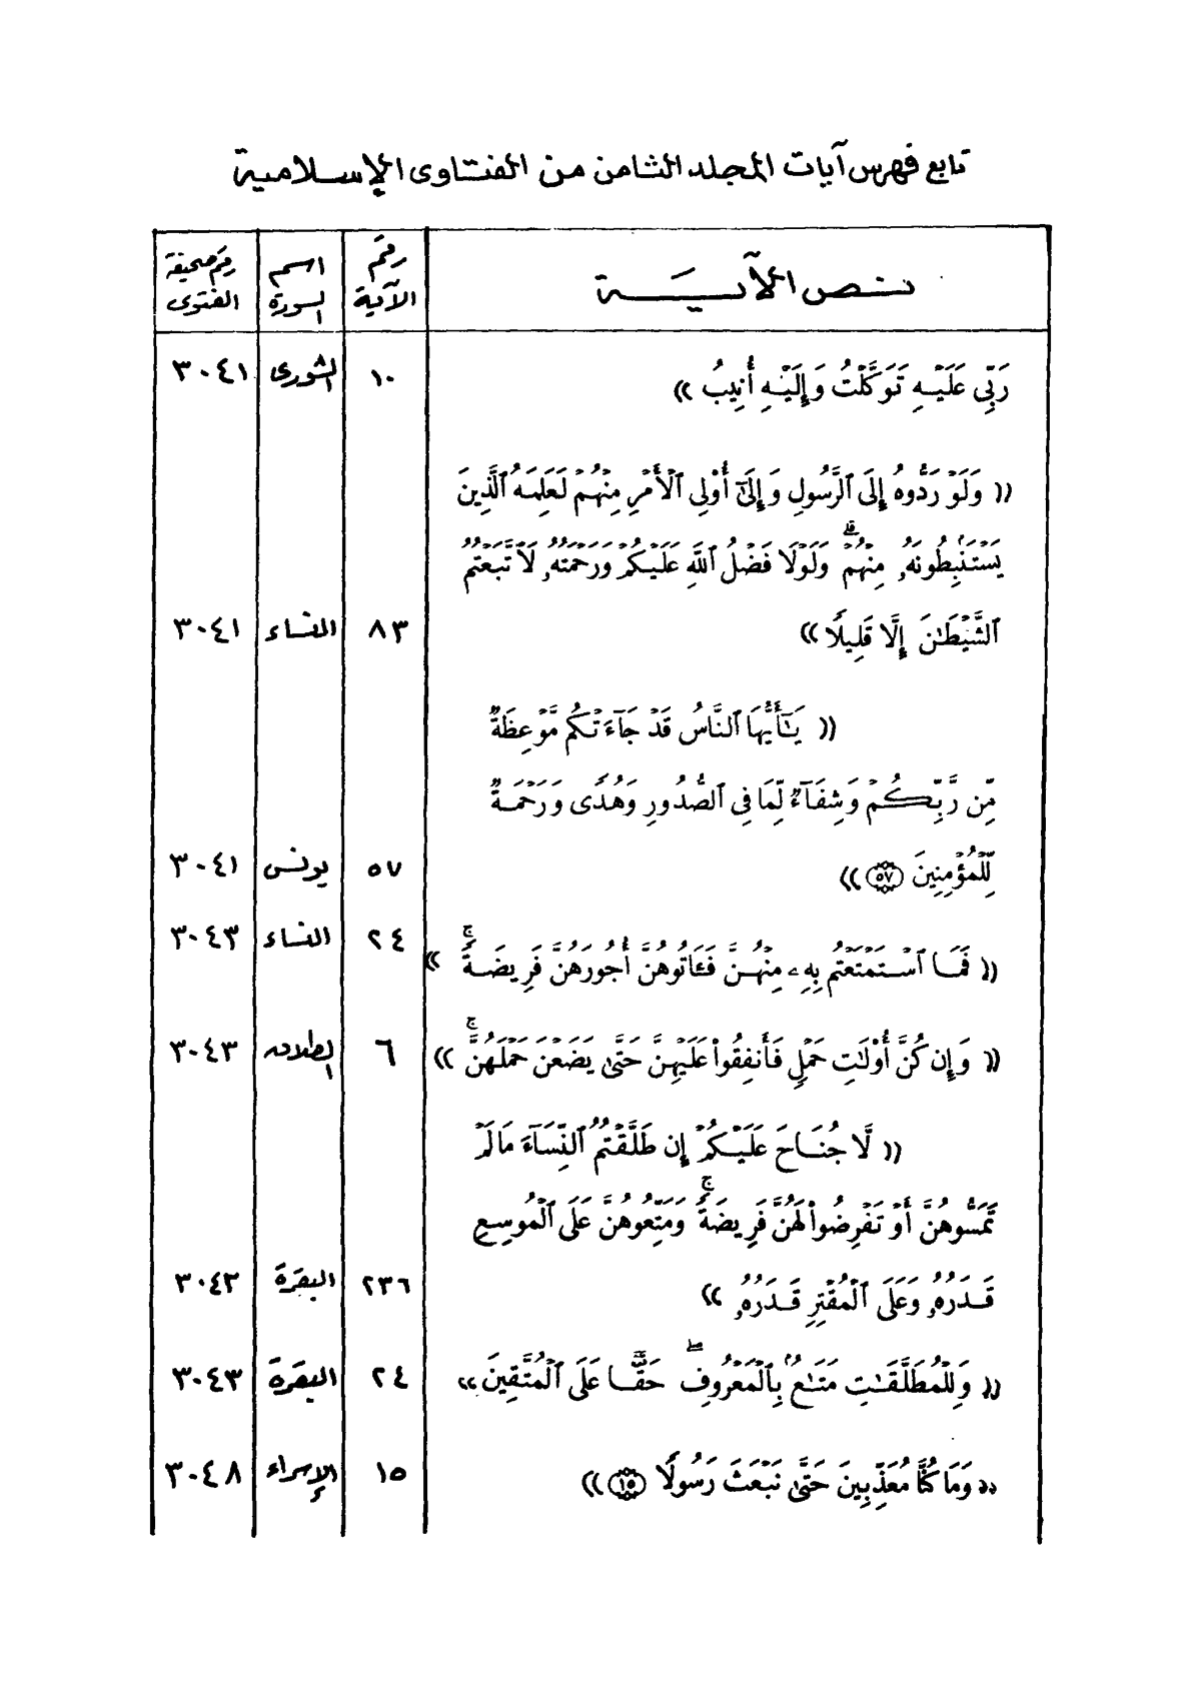 تابع فهرس آيات المجلد الثامن من الفتاوى الإسلامية
نص الآية رقم الآية اسم السورة رقم صحيفة الفتوى
رَبِّي عَلَيْهِ تَوَكَّلْتُ وَإِلَيْهِ أُنِيبُ » ١٠ الشورى ٣٠٤١
« وَلَوْ رَدُّوهُ إِلَى ٱلرَّسُولِ وَإِلَىٰٓ أُوْلِي ٱلْأَمْرِ مِنْهُمْ لَعَلِمَهُ ٱلَّذِينَ
يَسْتَنۢبِطُونَهُۥ مِنْهُمْۗ وَلَوْلَا فَضْلُ ٱللَّهِ عَلَيْكُمْ وَرَحْمَتُهُۥ لَٱتَّبَعْتُمُ
ٱلشَّيْطَٰنَ إِلَّا قَلِيلًا » ٨٣ النساء ٣٠٤١
« يَٰٓأَيُّهَا ٱلنَّاسُ قَدْ جَآءَتْكُم مَّوْعِظَةٌ
مِّن رَّبِّكُمْ وَشِفَآءٌ لِّمَا فِي ٱلصُّدُورِ وَهُدًى وَرَحْمَةٌ
لِّلْمُؤْمِنِينَ ٥٧ » ٥٧ يونس ٣٠٤١
« فَمَا ٱسْتَمْتَعْتُم بِهِۦ مِنْهُنَّ فَـَٔاتُوهُنَّ أُجُورَهُنَّ فَرِيضَةًۚ » ٢٤ النساء ٣٠٤٣
« وَإِن كُنَّ أُوْلَٰتِ حَمْلٍ فَأَنفِقُوا۟ عَلَيْهِنَّ حَتَّىٰ يَضَعْنَ حَمْلَهُنَّۚ » ٦ الطلاق ٣٠٤٣
« لَّا جُنَاحَ عَلَيْكُمْ إِن طَلَّقْتُمُ ٱلنِّسَآءَ مَا لَمْ
تَمَسُّوهُنَّ أَوْ تَفْرِضُوا۟ لَهُنَّ فَرِيضَةًۚ وَمَتِّعُوهُنَّ عَلَى ٱلْمُوسِعِ
قَدَرُهُۥ وَعَلَى ٱلْمُقْتِرِ قَدَرُهُۥ » ٢٣٦ البقرة ٣٠٤٣
« وَلِلْمُطَلَّقَٰتِ مَتَٰعٌۢ بِٱلْمَعْرُوفِۖ حَقًّا عَلَى ٱلْمُتَّقِينَ » ٢٤ البقرة ٣٠٤٣
« وَمَا كُنَّا مُعَذِّبِينَ حَتَّىٰ نَبْعَثَ رَسُولًا ١٥ » ١٥ الإسراء ٣٠٤٨